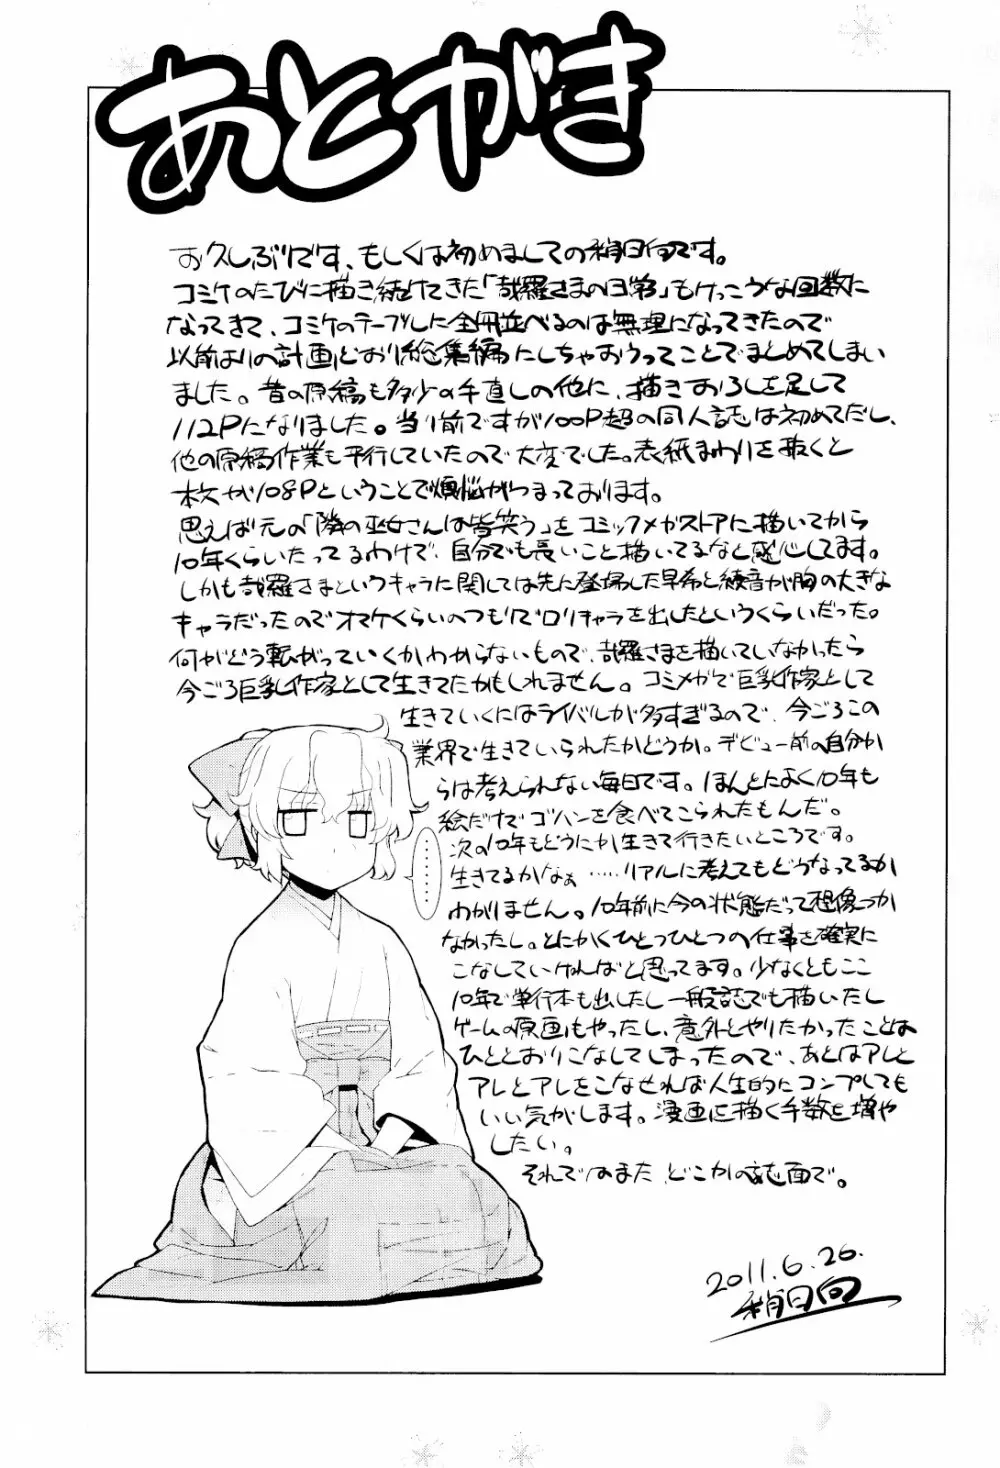 あとがき
お久しぶりです、もしくは初めましての稍日向です。
コミケのたびに描き続けてきた「哉羅さまの日常」もけっこうな回数に
なってきて、コミケのテーブルに全冊並べるのは無理になってきたので
以前よりの計画どおり総集編にしちゃおうってことでまとめてしまい
ました。昔の原稿も多少の手直しの他に、描きおろしを足して
112Pになりました。当り前ですが100P超の同人誌は初めてだし、
他の原稿作業も平行していたので大変でした。表紙まわりを抜くと
本文が108Pということで煩悩がつまっております。
思えば元の「隣の巫女さんは皆笑う」をコミックメガストアに描いてから
10年くらいたってるわけで、自分でも長いこと描いてるなと感心してます。
しかも哉羅さまというキャラに関しては先に登場した早希と綾音が胸の大きな
キャラだったのでオマケくらいのつもりでロリキャラを出したというくらいだった。
何がどう転がっていくかわからないもので、哉羅さまを描いていなかったら
今ごろ巨乳作家として生きてたかもしれません。コミメガで巨乳作家として
生きていくにはライバルが多すぎるので、今ごろこの
業界で生きていられたかどうか。デビュー前の自分か
らは考えられない毎日です。ほんとによく10年も
絵だけでゴハンを食べてこられたもんだ。
次の10年もどうにか生きて行きたいところです。
生きてるかなぁ……リアルに考えてもどうなってるか
わかりません。10年前に今の状態だって想像つか
なかったし。とにかくひとつひとつの仕事を確実に
こなしていければと思ってます。少なくともここ
10年で単行本も出したし一般誌でも描いたし
ゲームの原画もやったし、意外とやりたかったことは
ひととおりこなしてしまったので、あとはアレと
アレとアレをこなせれば人生的にコンプしても
いい気がします。漫画を描く手数を増や
したい。
それではまた どこかの誌面で。
………
2011.6.26.
稍日向